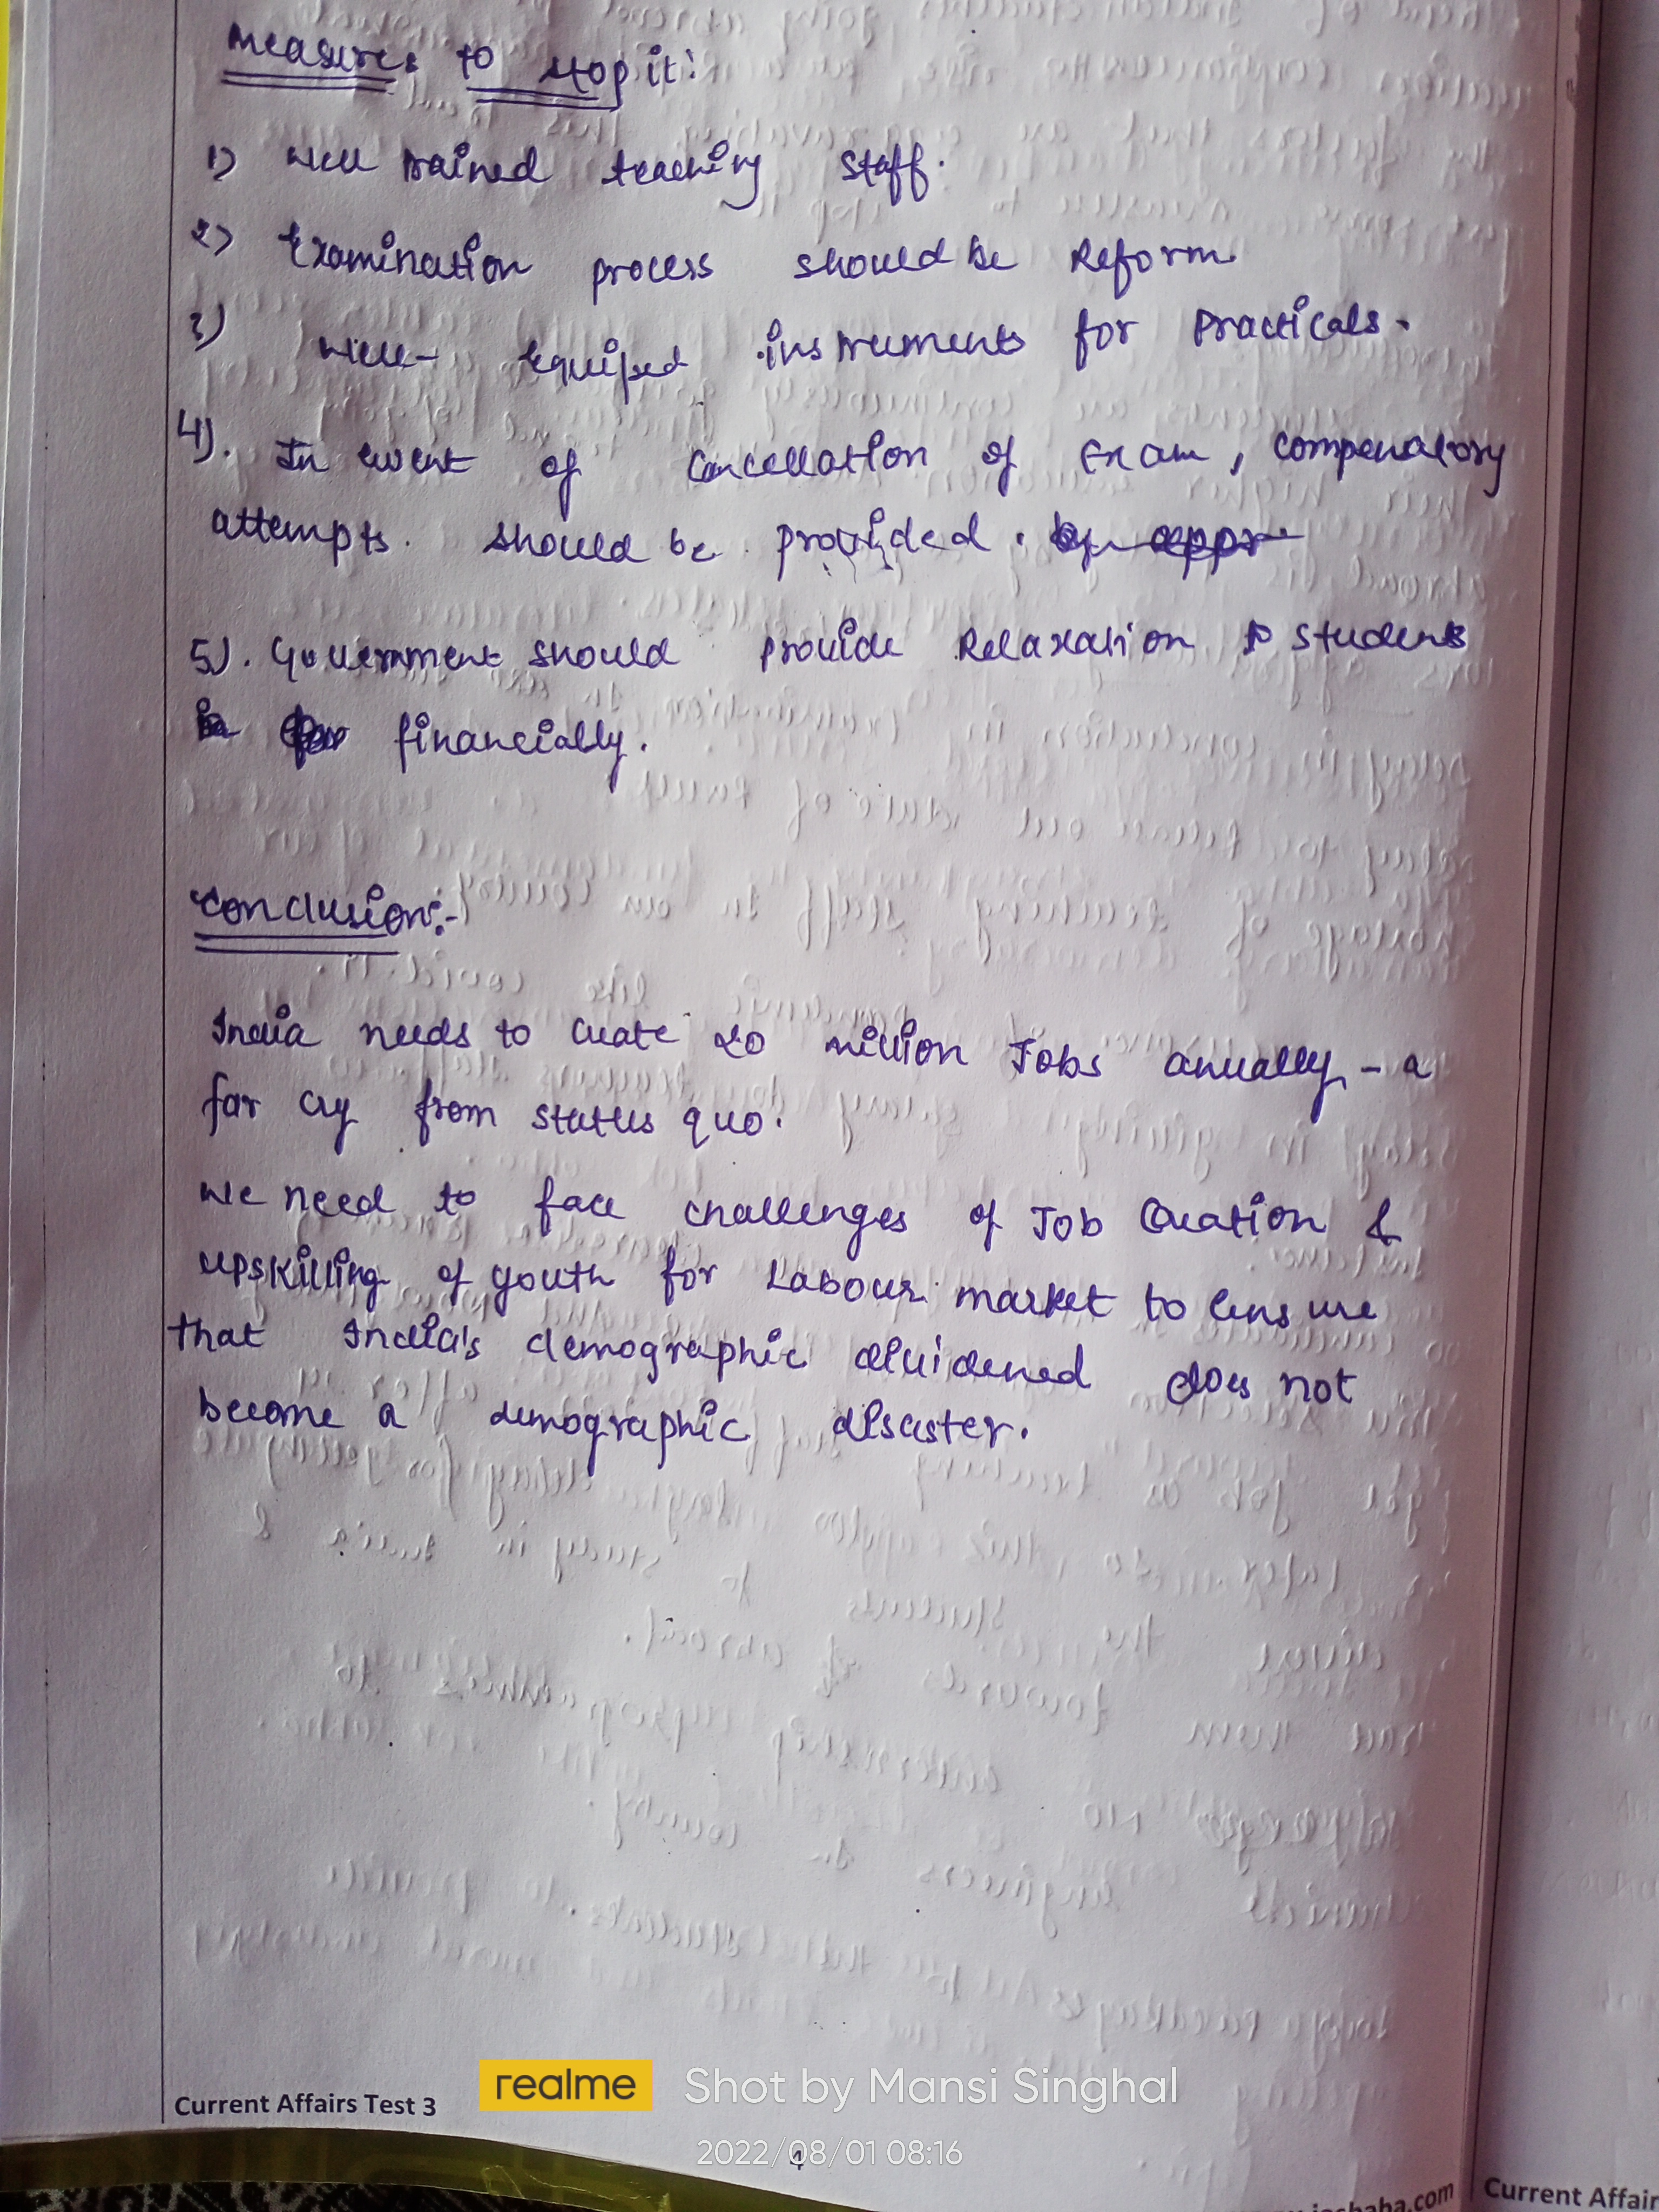 Measures to stop it:
1) Well trained teaching staff.
2) Examination process should be Reform.
3) Well- Equiped instruments for Practicals.
4). In event of Cancellation of Exam, compenatory
attempts. should be provided.
5). Government should provide Relaxation to students
financially.
Conclusion:-
India needs to create 20 million Jobs anually - a
far cry from status quo.
We need to face challenges of Job Creation &
upskilling of youth for Labour market to ensure
that India's demographic dividened does not
become a demographic disaster.
Current Affairs Test 3
realme Shot by Mansi Singhal
2022/08/01 08:16
4
Current Affair